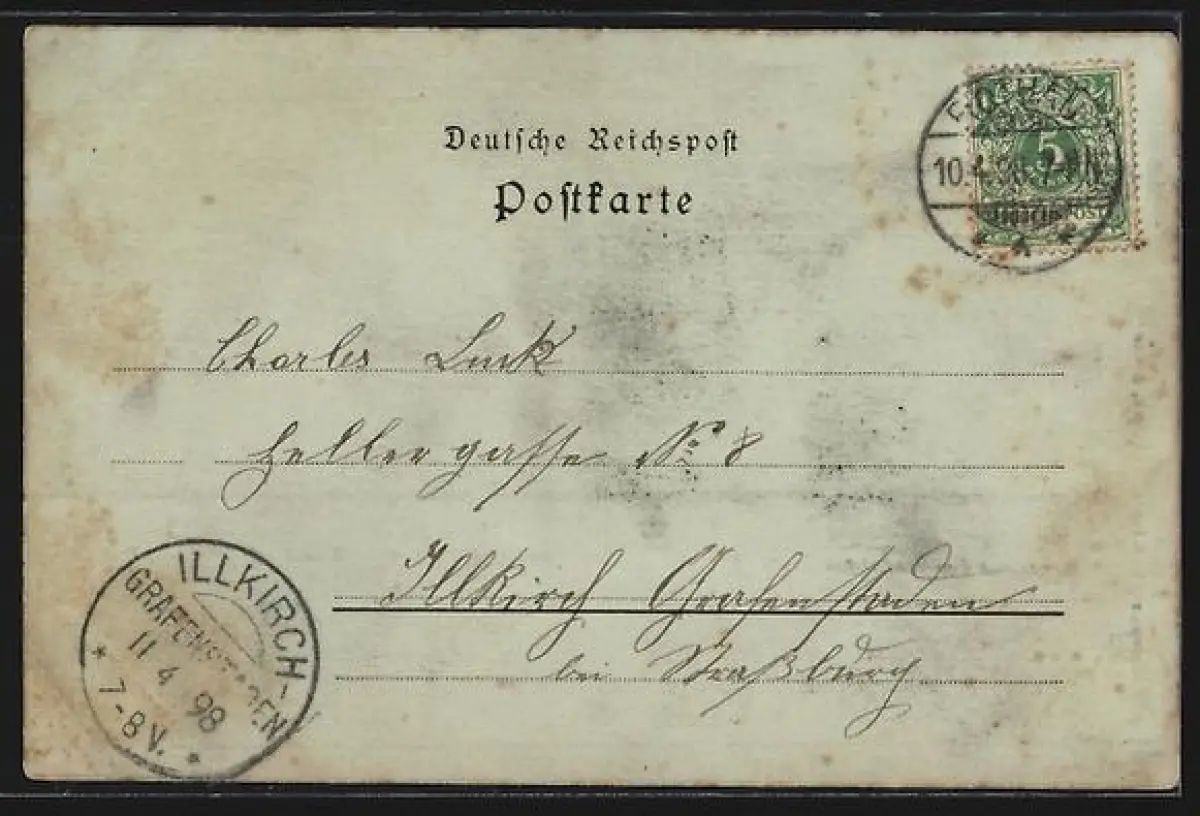 Deutsche Reichspost
Postkarte
10.4.98. 7-8N
5
REICHSPOST
Charles Luck
Hellergasse No 8
Illkirch Grafenstaden
bei Straßburg
ILLKIRCH-
GRAFENSTADEN
11 4 98
* 7-8V. *